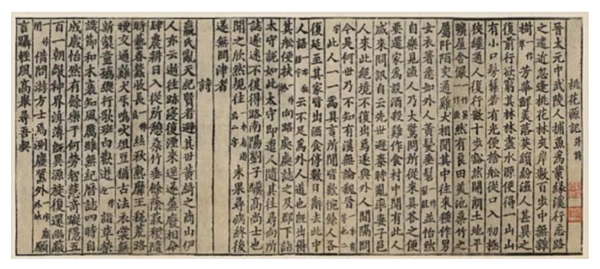 桃花源記并詩
晉太元中武陵人捕魚爲業緣溪行忘路
之遠近忽逢桃花林夾岸數百步中無雜
樹芳華鮮美落英繽紛漁人甚異之
復前行欲窮其林林盡水源便得一山山
有小口髣髴若有光便捨船從口入初極
狹纔通人復行數十步豁然開朗土地平
曠屋舍儼然有良田美池桑竹之
屬阡陌交通雞犬相聞其中往來種作男
女衣著悉如外人黃髮垂髫並怡然
自樂見漁人乃大驚問所從來具答之便
要還家爲設酒殺雞作食村中聞有此人
咸來問訊自云先世避秦時亂率妻子邑
人來此絕境不復出焉遂與外人間隔問
今是何世乃不知有漢無論魏晉
此人一一爲具言所聞皆歎惋餘人各
復延至其家皆出酒食停數日辭去此中
人語云不足爲外人道也既出得
其船便扶向路處處誌之及郡下詣
太守說如此太守即遣人隨其往尋向所
誌遂迷不復得路南陽劉子驥高尚士也
聞之欣然規往未果尋病終後
遂無問津者
詩
嬴氏亂天紀賢者避其世黃綺之商山伊
人亦云逝往跡浸復湮來逕遂蕪廢相命
肆農耕日入從所憩桑竹垂餘蔭菽稷隨
時藝春蠶收長絲秋熟靡王稅荒路
曖交通雞犬互鳴吠俎豆猶古法衣裳無
新製童孺縱行歌班白歡游詣草榮
識節和木衰知風厲雖無紀曆誌四時自
成歲怡然有餘樂于何勞智慧奇蹤隱五
百一朝敞神界淳薄既異源旋復還幽蔽
借問游方士焉測塵囂外願
言躡輕風高舉尋吾契